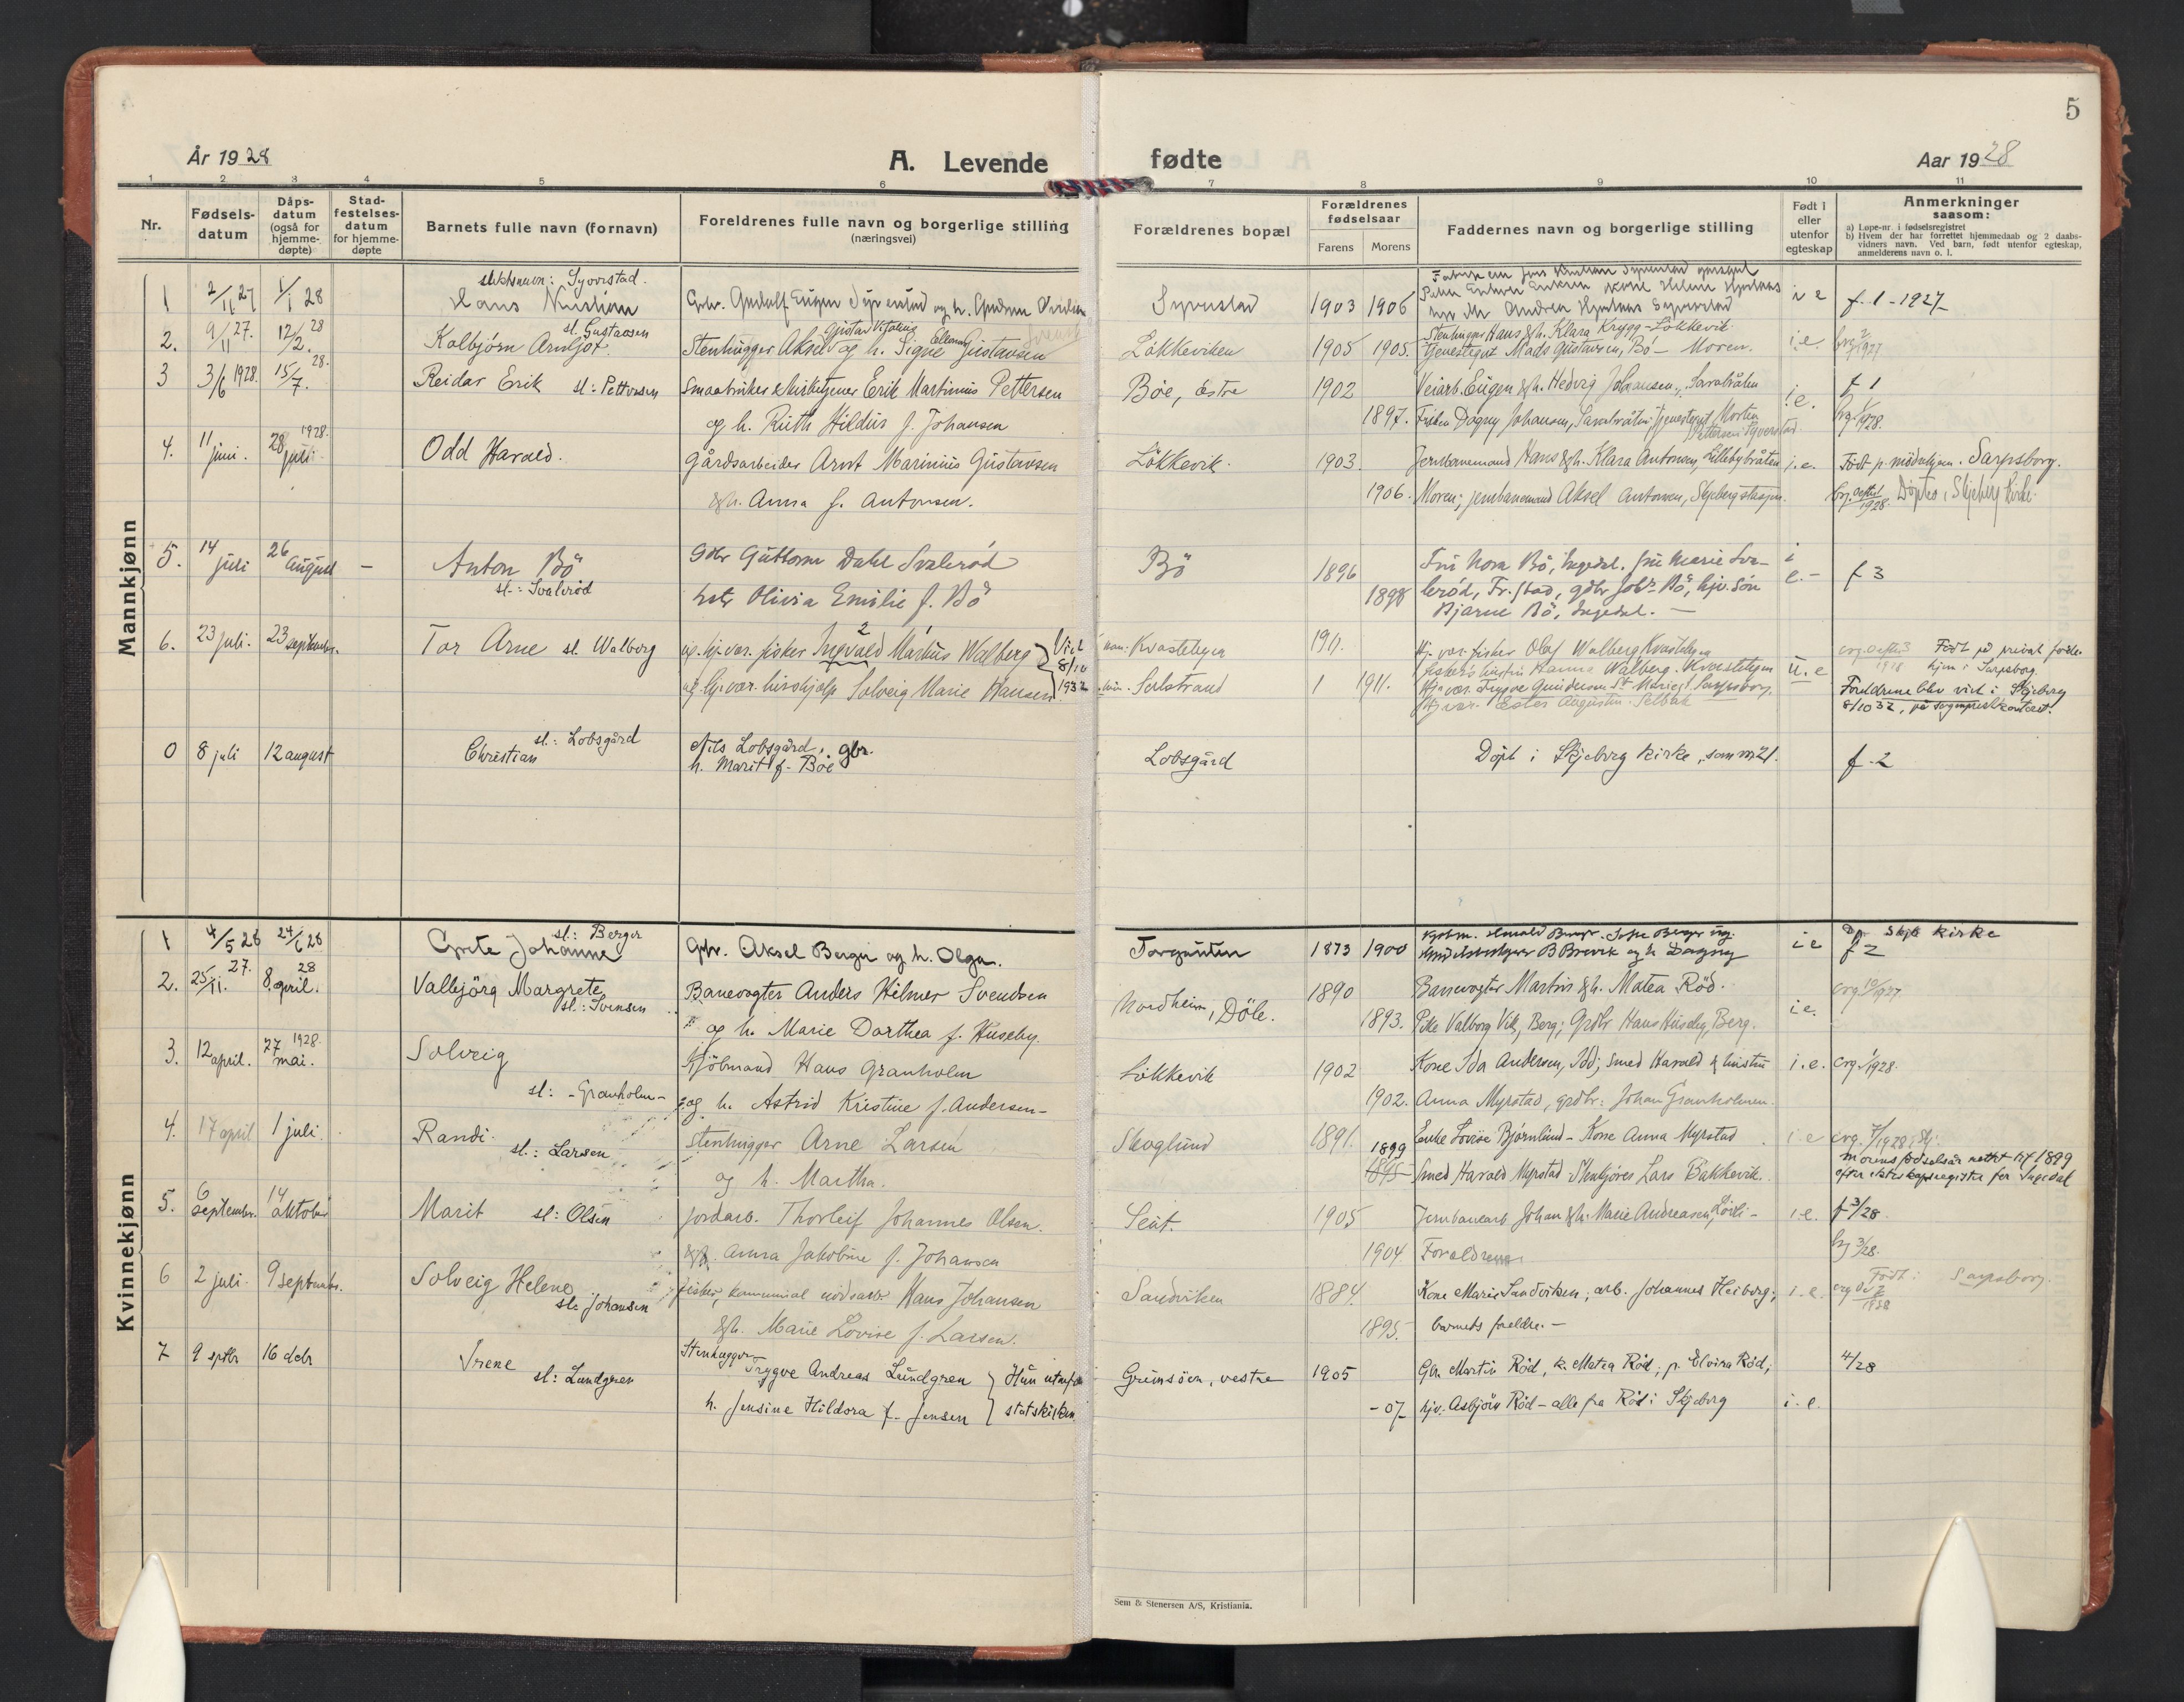 5
År 1928
A. Levende fødte
Aar 1928
1 2 3 4 5 6 7 8 9 10 11
Nr.
Fødsels-
datum
Dåps-
datum
(også for
hjemme-
døpte)
Stad-
festelses-
datum
for hjemme-
døpte
Barnets fulle navn (fornavn)
Foreldrenes fulle navn og borgerlige stilling
(næringsvei)
Forældrenes bopæl
Forældrenes
fødselsaar
Farens Morens
Faddernes navn og borgerlige stilling
Født i
eller
utenfor
egteskap
Anmerkninger
saasom:
a) Løpe-nr. i fødselsregistret
b) Hvem der har forrettet hjemmedaab og 2 daabs-
vidners navn. Ved barn, født utenfor egteskap,
anmelderens navn o. l.
Mannkjønn
1 2/11 27 1/1 28
Hans Kristian
Syverstad 1903 1906
i e f. 1 - 1927
2. 9/11 27. 12/2. 28
sl. Gustavsen
Kolbjørn Arnljot.
Stenhugger Aksel Gustav og h. Signe Gustavsen
Løkkeviken 1905 1905.
Stenhugger Hans &h. Klara Krygg - Løkkevik.
Tjenestegut Mads Gustavsen, Bø - Moren.
i.e.
3 3/6 1928. 15/7. 28.
Reidar Erik sl: Pettersen
Smaabruker & kirketjener Erik Martinius Pettersen
og h. Ruth Hildur f. Johansen
Bøe, østre 1902
1897.
Veiarb. Eugen &h. Hedvig Johansen,
Frøken Dagny Johansen,
i.e. f 1
4. 11 juni. 28 juli 1928.
Odd Harald.
Gårdsarbeider Arnt Marinius Gustavsen
&h. Anna f. Antonsen.
Løkkevik. 1903.
1906.
Jernbanemand Hans &h. Klara Antonsen, Lillebybråten
Moren; jernbanemand Aksel Antonsen, Skjebergstasjon.
i.e.
Født p. mødrehjem. Sarpsborg.
Døptes i Skjeberg Kirke.
5. 14 juli 26 august -
Anton Bø
sl.: Svalerød
Gbr Guttorm Dahl Svalerød
hstr Olivia Emilie f. Bø
Bø 1896
1898
Fru Nora Bø, Ingedal. fru Marie Sva-
lerød, Fr.stad, gbr Joh. Bø, hjv. søn
Bjarne Bø, Ingedal. -
i e. - f 3
6. 23 juli. 23 september.
Tor Arne sl. Walberg
ug. hj. vær. fisker Ingvald Markus Walberg
ug. hj. vær. hushjelp Solveig Marie Hansen
Viet 8/10 1932
Kvastebyen 1911.
Selstrand 1911.
Hj. vær. fisker Olaf Walberg Kvastebyen
fiskers hustru Hanna Walberg. Kvastebyen
u. e
Født på privat føde-
hjem i Sarpsborg.
Foreldrene blev viet i Skjeberg
8/10 32, på sogneprestkontoret.
0 8 juli 12 august
sl.: Lobsgård
Christian
Nils Lobsgård, gbr.
h. Marit f. Bøe
Lobsgård
Døpt i Skjeberg kirke, som nr 21.
f. 2
Kvinnekjønn
1 4/5 28 24/6 28
sl: Berger
Grete Johanne
Gbr. Aksel Berger og h. Olga.
Torgauten 1873 1900
i e f 2
Dp. Skjb kirke
2. 25/11. 27. 8. april. 28
Valbjörg Margrete
sl: Svensen
Banevogter Anders Hilmer Svendsen
og h. Marie Dorthea f. Huseby.
Nordheim, Döle. 1890
1893.
Banevogter Martin &h. Matea Rød.
Pike Valborg Vik, Berg; Grdbr Hans Huseby, Berg.
i.e.
3. 12 april. 27 mai. 1928.
Solveig
sl: - Granholm -
Kjøbmand Hans Granholm
og h. Astrid Kristine f. Andersen -
Løkkevik 1902
1902.
Kone Ida Andersen, Idd; smed Harald & hustru
Anna Myrstad, grdbr: Johan Granholmen.
i.e.
4. 17 april 1 juli.
Randi.
sl.: Larsen
Stenhugger Arne Larsen
og h. Martha.
Skoglund 1891.
1899
Enke Lovise Bjørnlund - Kone Anna Myrstad
Smed Harald Myrstad - Skrubjøres Lars Bakkevik.
i e
Morens fødselsår rettet til 1899
5. 6 september. 14 oktober
Marit sl: Olsen
Jordarb. Thorleif Johannes Olsen.
&h. Anna Jakobine f. Johansen
1905
1904.
Jernbanearb Johan &h. Marie Andreasen,
Foreldrene
i.e. f 3/28.
6 2 juli. 9 septembr.
Solveig Helene
sl: Johansen
fisker, kommunal nødsarb. Hans Johansen
&h. Marie Lovise f. Larsen.
Sandviken 1884.
1895.
Kone Marie Sandviken; arb. Johannes Heiberg;
barnets foreldre. -
i.e.
Født i Sarpsborg.
7 9 sptbr 16 dcbr
Irene
sl: Lundgren
Stenhugger
Trygve Andreas Lundgren
h. Jensine Hildora f. Jensen
Hun utenfor
statskirken
Grimsöen, vestre 1905
- 07
Gbr. Martin Rød, k. Matea Rød; p. Elvira Rød;
hjv. Asbjörn Rød - alle fra Rød i Skjeberg
i. e.
4/28
Sem & Stenersen A/S, Kristiania.